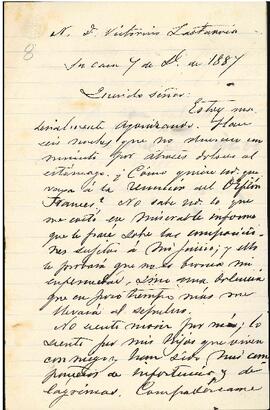 8
N. D. Victorino Lastarria
Su casa 7 de D. de 1887
Querido señor:
Estoy ma
terialmente agonizando. Hace
seis noches que no duermo un
minuto por atroces dolores al
estómago. ¿Cómo quiere ud. que
vaya á la reunion del Orfeón
Frances? No sabe ud. lo que
me costó un miserable informe
que le pasé sobre las composicio
nes sujetas á mi juicio; y ello
le probará que no es broma mi
enfermedad, sino una dolencia
que en poco tiempo mas me
llevará al sepulcro.
No siento morir por mí; lo
siento por mis hijos que viven
conmigo y han sido mis com
pañeros de infortunio y de
lágrimas. Compadézcame